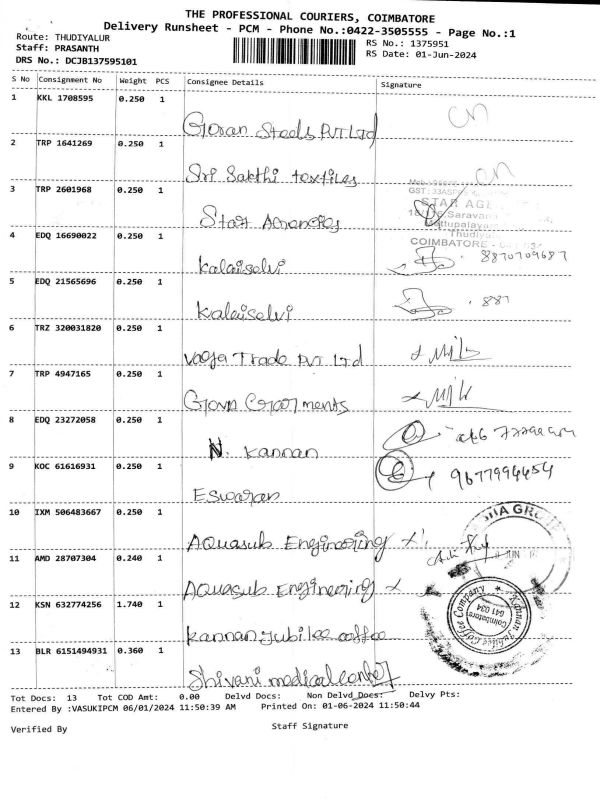 THE PROFESSIONAL COURIERS, COIMBATORE
Delivery Runsheet - PCM - Phone No.:0422-3505555 - Page No.:1
Route: THUDIYALUR
Staff: PRASANTH
DRS No.: DCJB137595101
RS No.: 1375951
RS Date: 01-Jun-2024
S No Consignment No Weight PCS Consignee Details Signature
1 KKL 1708595 0.250 1
2 TRP 1641269 0.250 1
Sri Sakthi textiles
3 TRP 2601968 0.250 1
Star Agencies
STAR AGE
Thudiya
COIMBATORE -
4 EDQ 16690022 0.250 1
Kalaiselvi 8870709687
5 EDQ 21565696 0.250 1
Kalaiselvi 887
6 TRZ 320031820 0.250 1
Trade PVT Ltd
7 TRP 4947165 0.250 1
8 EDQ 23272058 0.250 1
N. Kannan
9 KOC 61616931 0.250 1
Eswaran 9677994454
10 IXM 506483667 0.250 1
Aquasub Engineering
11 AMD 28707304 0.240 1
Aquasub Engineering
12 KSN 632774256 1.740 1
Kannan Jubilee coffee
Kannan Jubilee Coffee Company
Coimbatore
641 034
13 BLR 6151494931 0.360 1
Shivani medical center
Tot Docs: 13 Tot COD Amt: 0.00 Delvd Docs: Non Delvd Docs: Delvy Pts:
Entered By :VASUKIPCM 06/01/2024 11:50:39 AM Printed On: 01-06-2024 11:50:44
Verified By Staff Signature